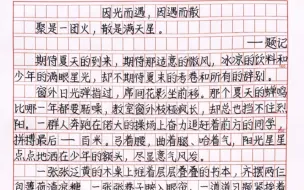 因光而遇，因遇而散
聚是一团火，散是满天星。
——题记
期待夏天的到来，期待那适意的微风，冰凉的饮料和
少年的满眼星光，却不期待夏末的考卷和所有的辞别。
窗外日光弹指过，席间花影坐前移。那个夏天的蝉鸣
比哪一年都要聒噪，教室窗外枝桠疯长，却总也挡不住烈
阳。一群人奔跑在偌大的操场上奋力追赶着前方的同学，
拼搏最后一百米。弓着腰，曲着腿，哈着气，阳光星星
点点地洒在少年的额头，尽显意气风发。
一张张泛黄的木桌上堆着层层叠叠的书本，齐摆两仨